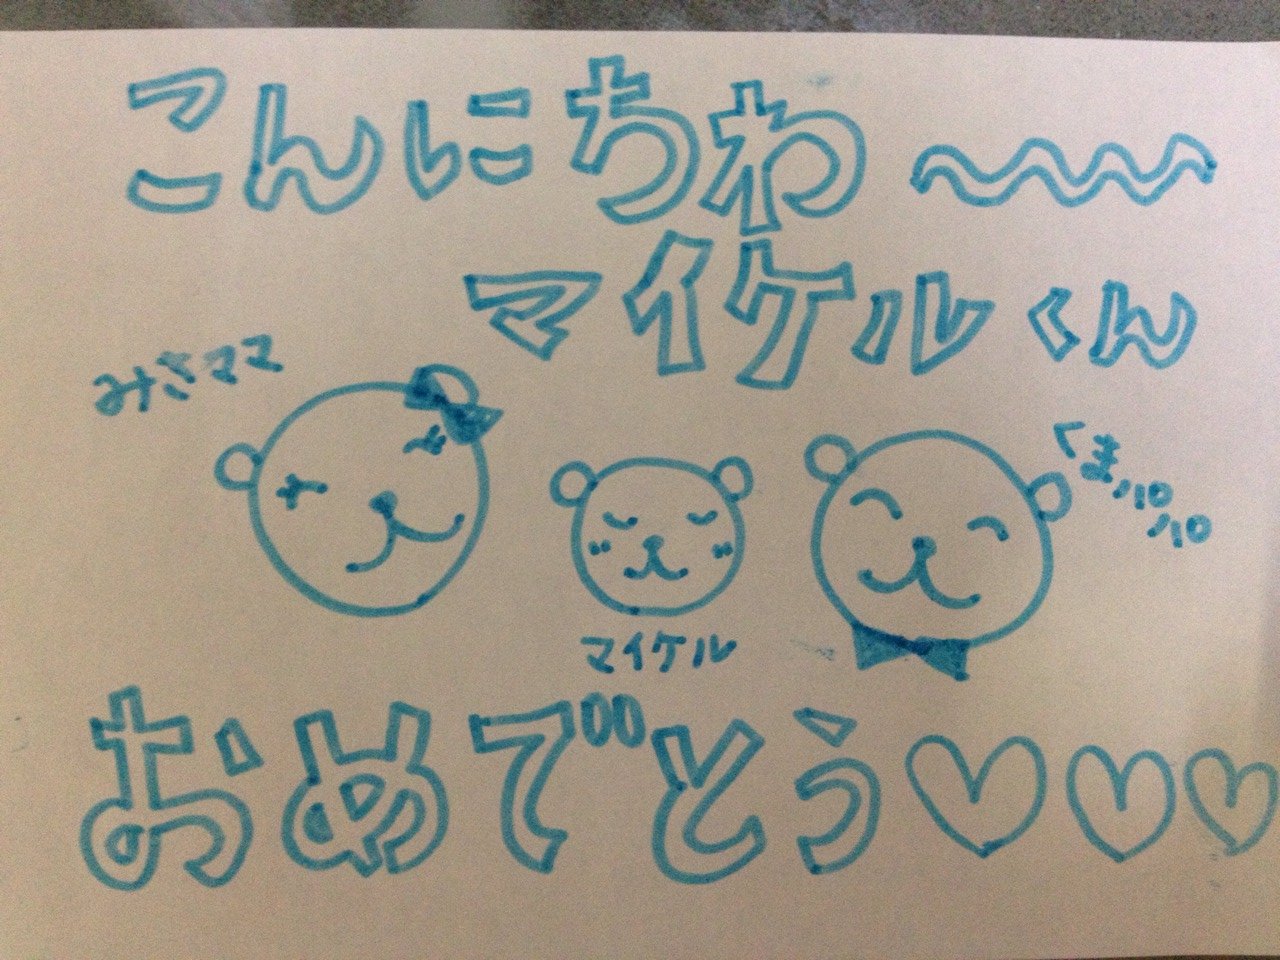 こんにちわ〜〜〜
マイケルくん
みさママ
くまパパ
マイケル
おめでとう♡♡♡